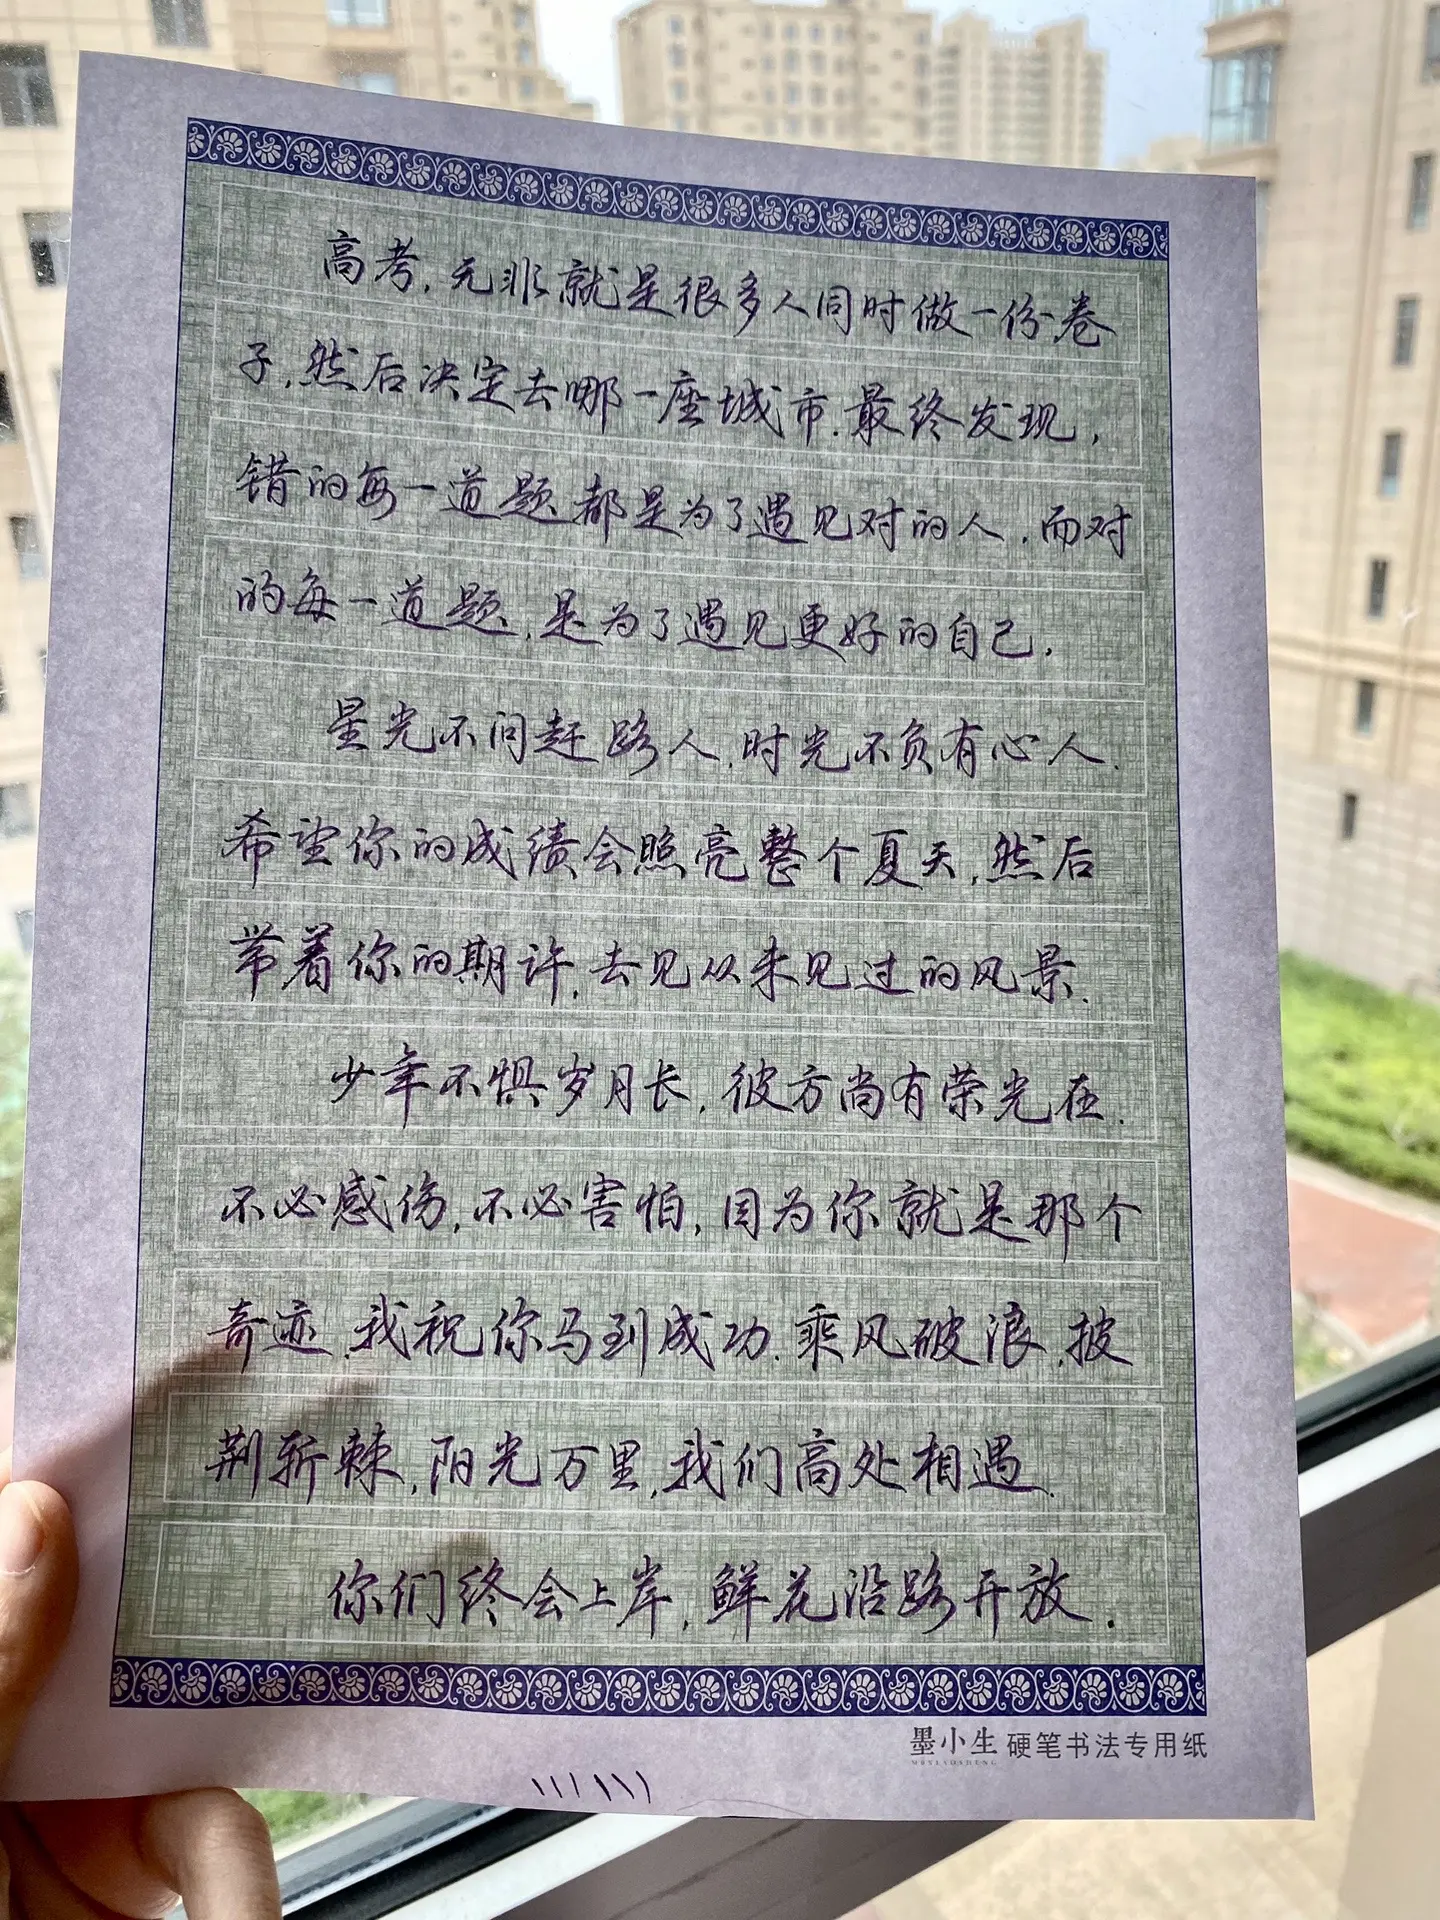 高考,无非就是很多人同时做一份卷
子,然后决定去哪一座城市.最终发现,
错的每一道题都是为了遇见对的人.而对
的每一道题,是为了遇见更好的自己.
星光不问赶路人,时光不负有心人.
希望你的成绩会照亮整个夏天,然后
带着你的期许,去见从未见过的风景.
少年不惧岁月长,彼方尚有荣光在.
不必感伤,不必害怕,因为你就是那个
奇迹.我祝你马到成功.乘风破浪.披
荆斩棘,阳光万里,我们高处相遇.
你们终会上岸,鲜花沿路开放.
墨小生 硬笔书法专用纸